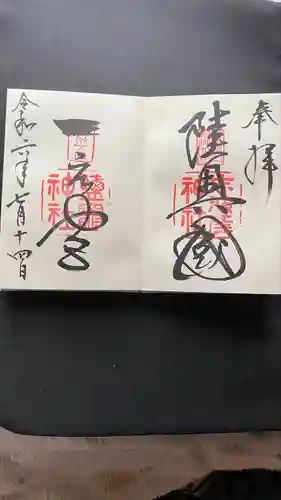 奉拝
陸奥国
一之宮
神社
神社
令和六年七月十四日